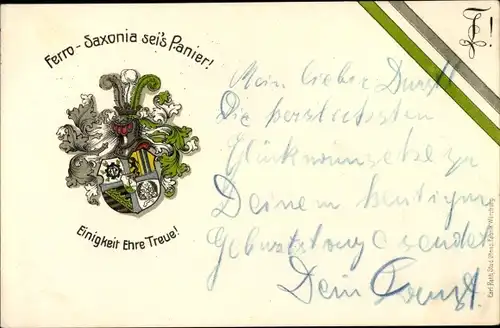 Ferro - Saxonia sei's Panier!
Einigkeit Ehre Treue!
Mein lieber
Die herzlichsten
Glückwünsche zu
Deinem heutigen
Geburtstage sendet
Dein